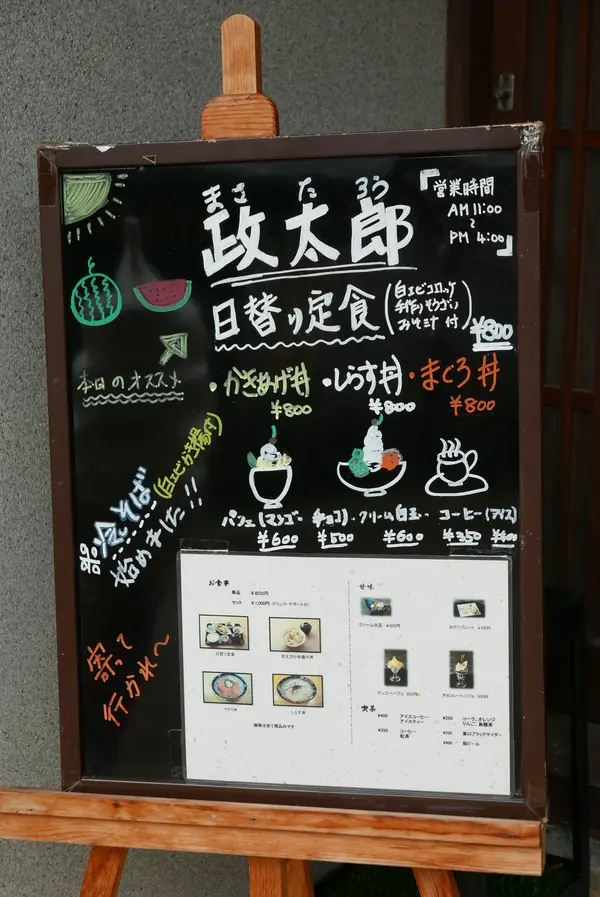 まさ た ろう
政太郎
『営業時間
AM 11:00
~
PM 4:00』
日替り定食
(白エビコロッケ
手作りそうざい
みそ汁 付)
¥800
本日のオススメ
・かきあげ丼
¥800
・しらす丼
¥800
・まぐろ丼
¥800
冷そば
(白エビから揚付)
始めました!!
パフェ(マンゴー チョコ)・クリーム白玉・ コーヒー(アイス)
¥600 ¥500 ¥600 ¥350 ¥400
寄って
行かれ~
お食事
単品 ¥800円
セット ¥1,000円(ドリンク・デザート付)
日替り定食
まぐろ丼
しらす丼
価格は全て税込みです
甘味
クリーム白玉 ¥600円
おやつプレート
マンゴーパフェ 600円
チョコレートパフェ 500円
喫茶
¥400 アイスコーヒー
アイスティー
¥350 コーヒー
紅茶
¥250 コーラ、オレンジ
りんご、烏龍茶
富山ブラックサイダー
瓶ビール